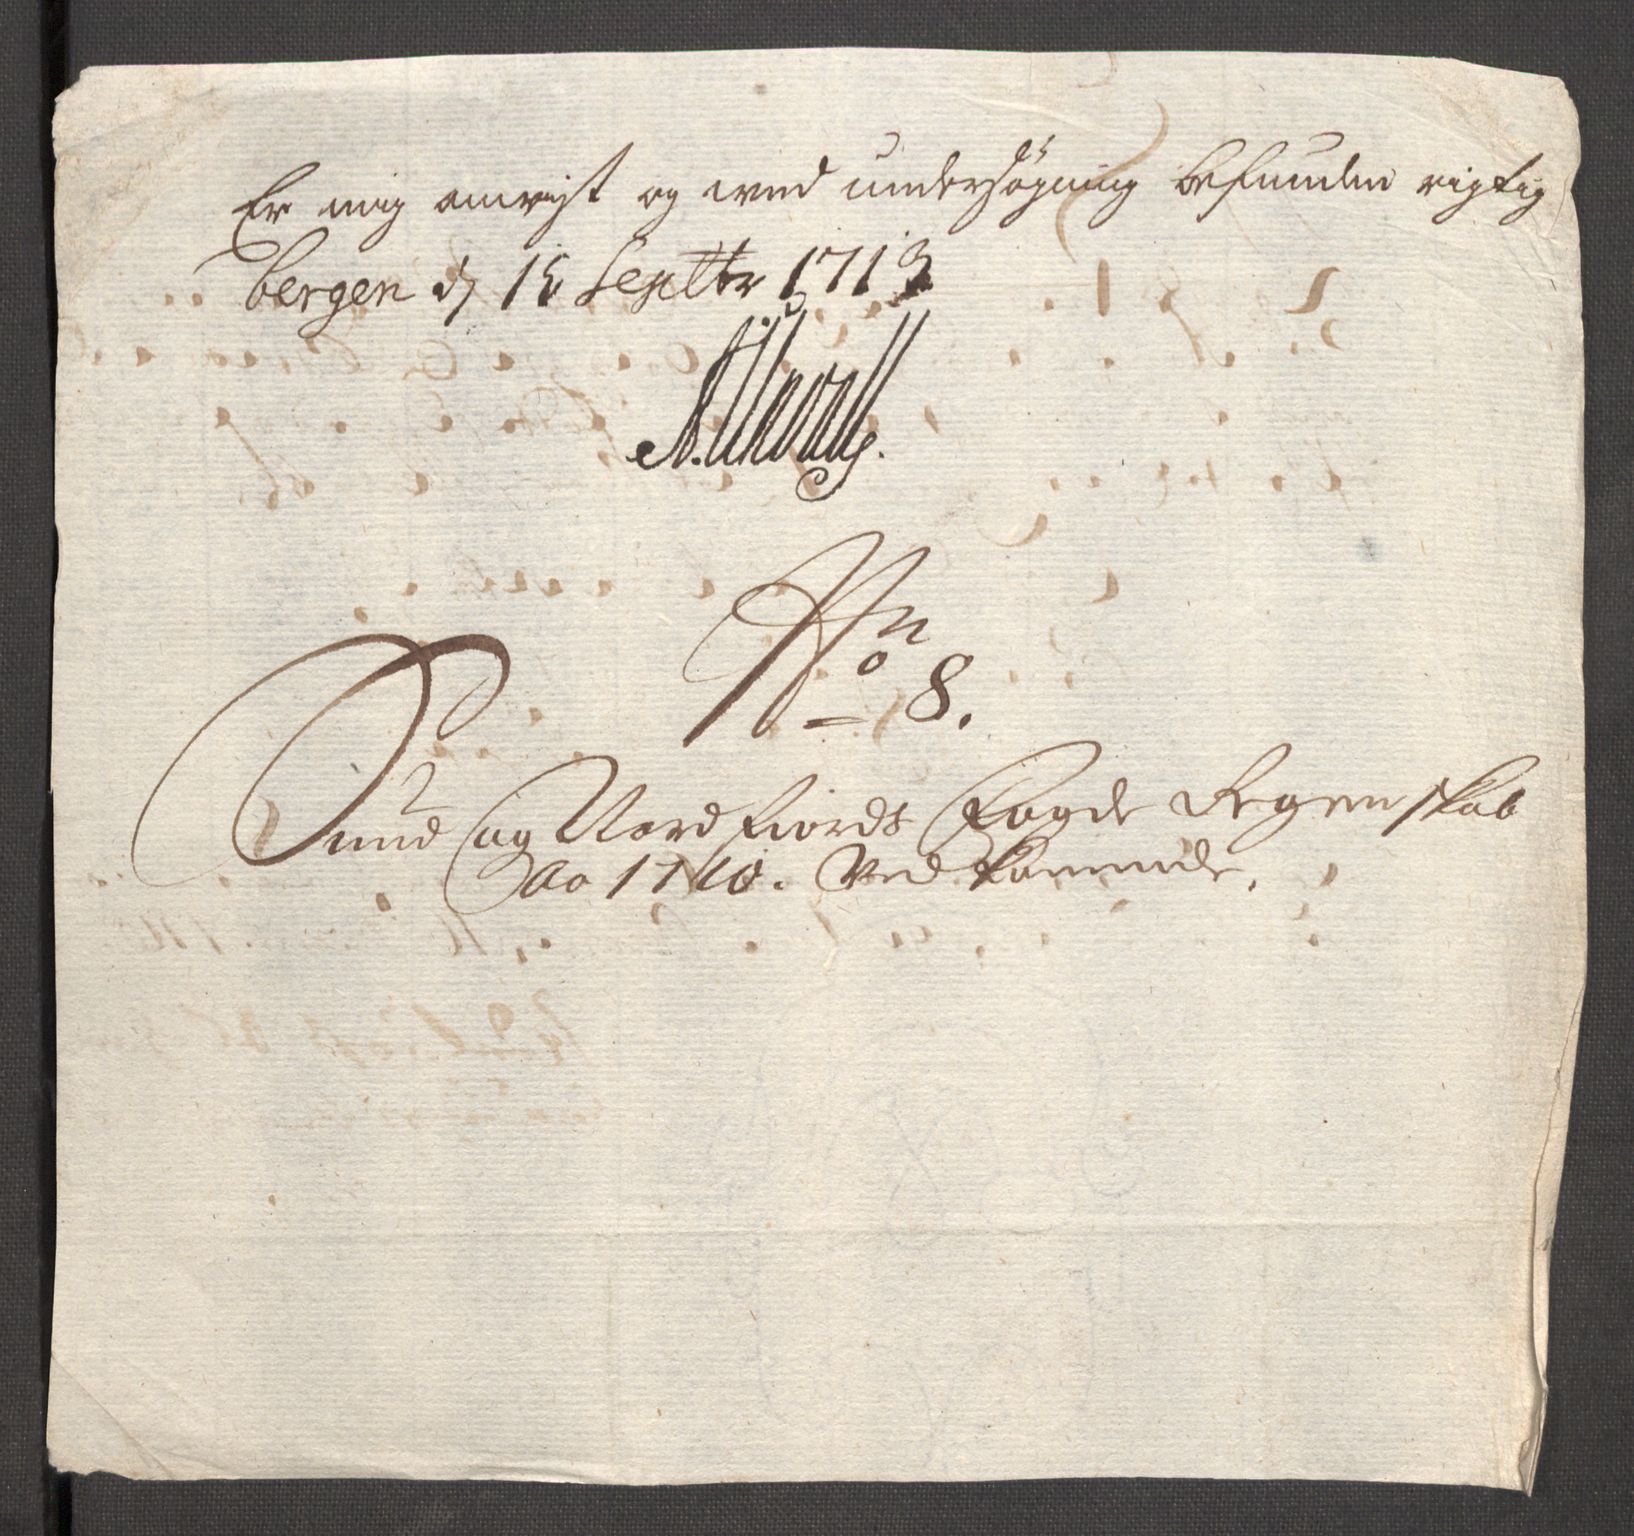 Er mig anvist og ved undersögning befunden rigtig
bergen d 15 Septbr 1713
No 8.
Sund og Nordfiords Fogde Regenskab
Ao 1710. Vedkommende.